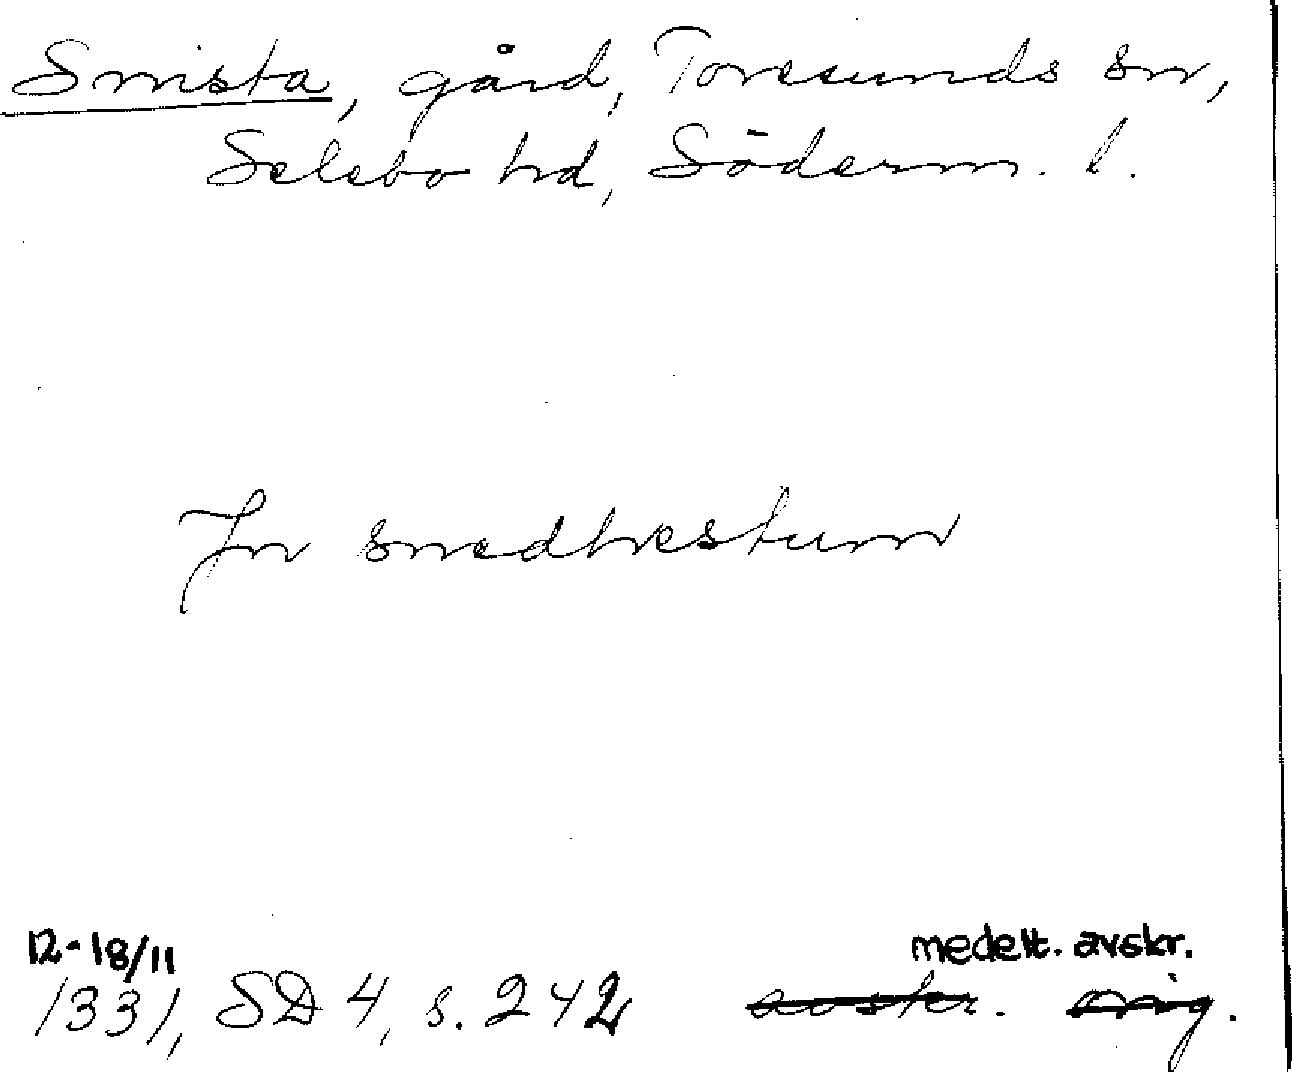 Smista, gård, Toresunds sn,
Selebo hd, Söderm. l.
Jn smedhrestum
12-18/11
medelt. avskr.
1331, SD 4, s. 242 avskr. orig.